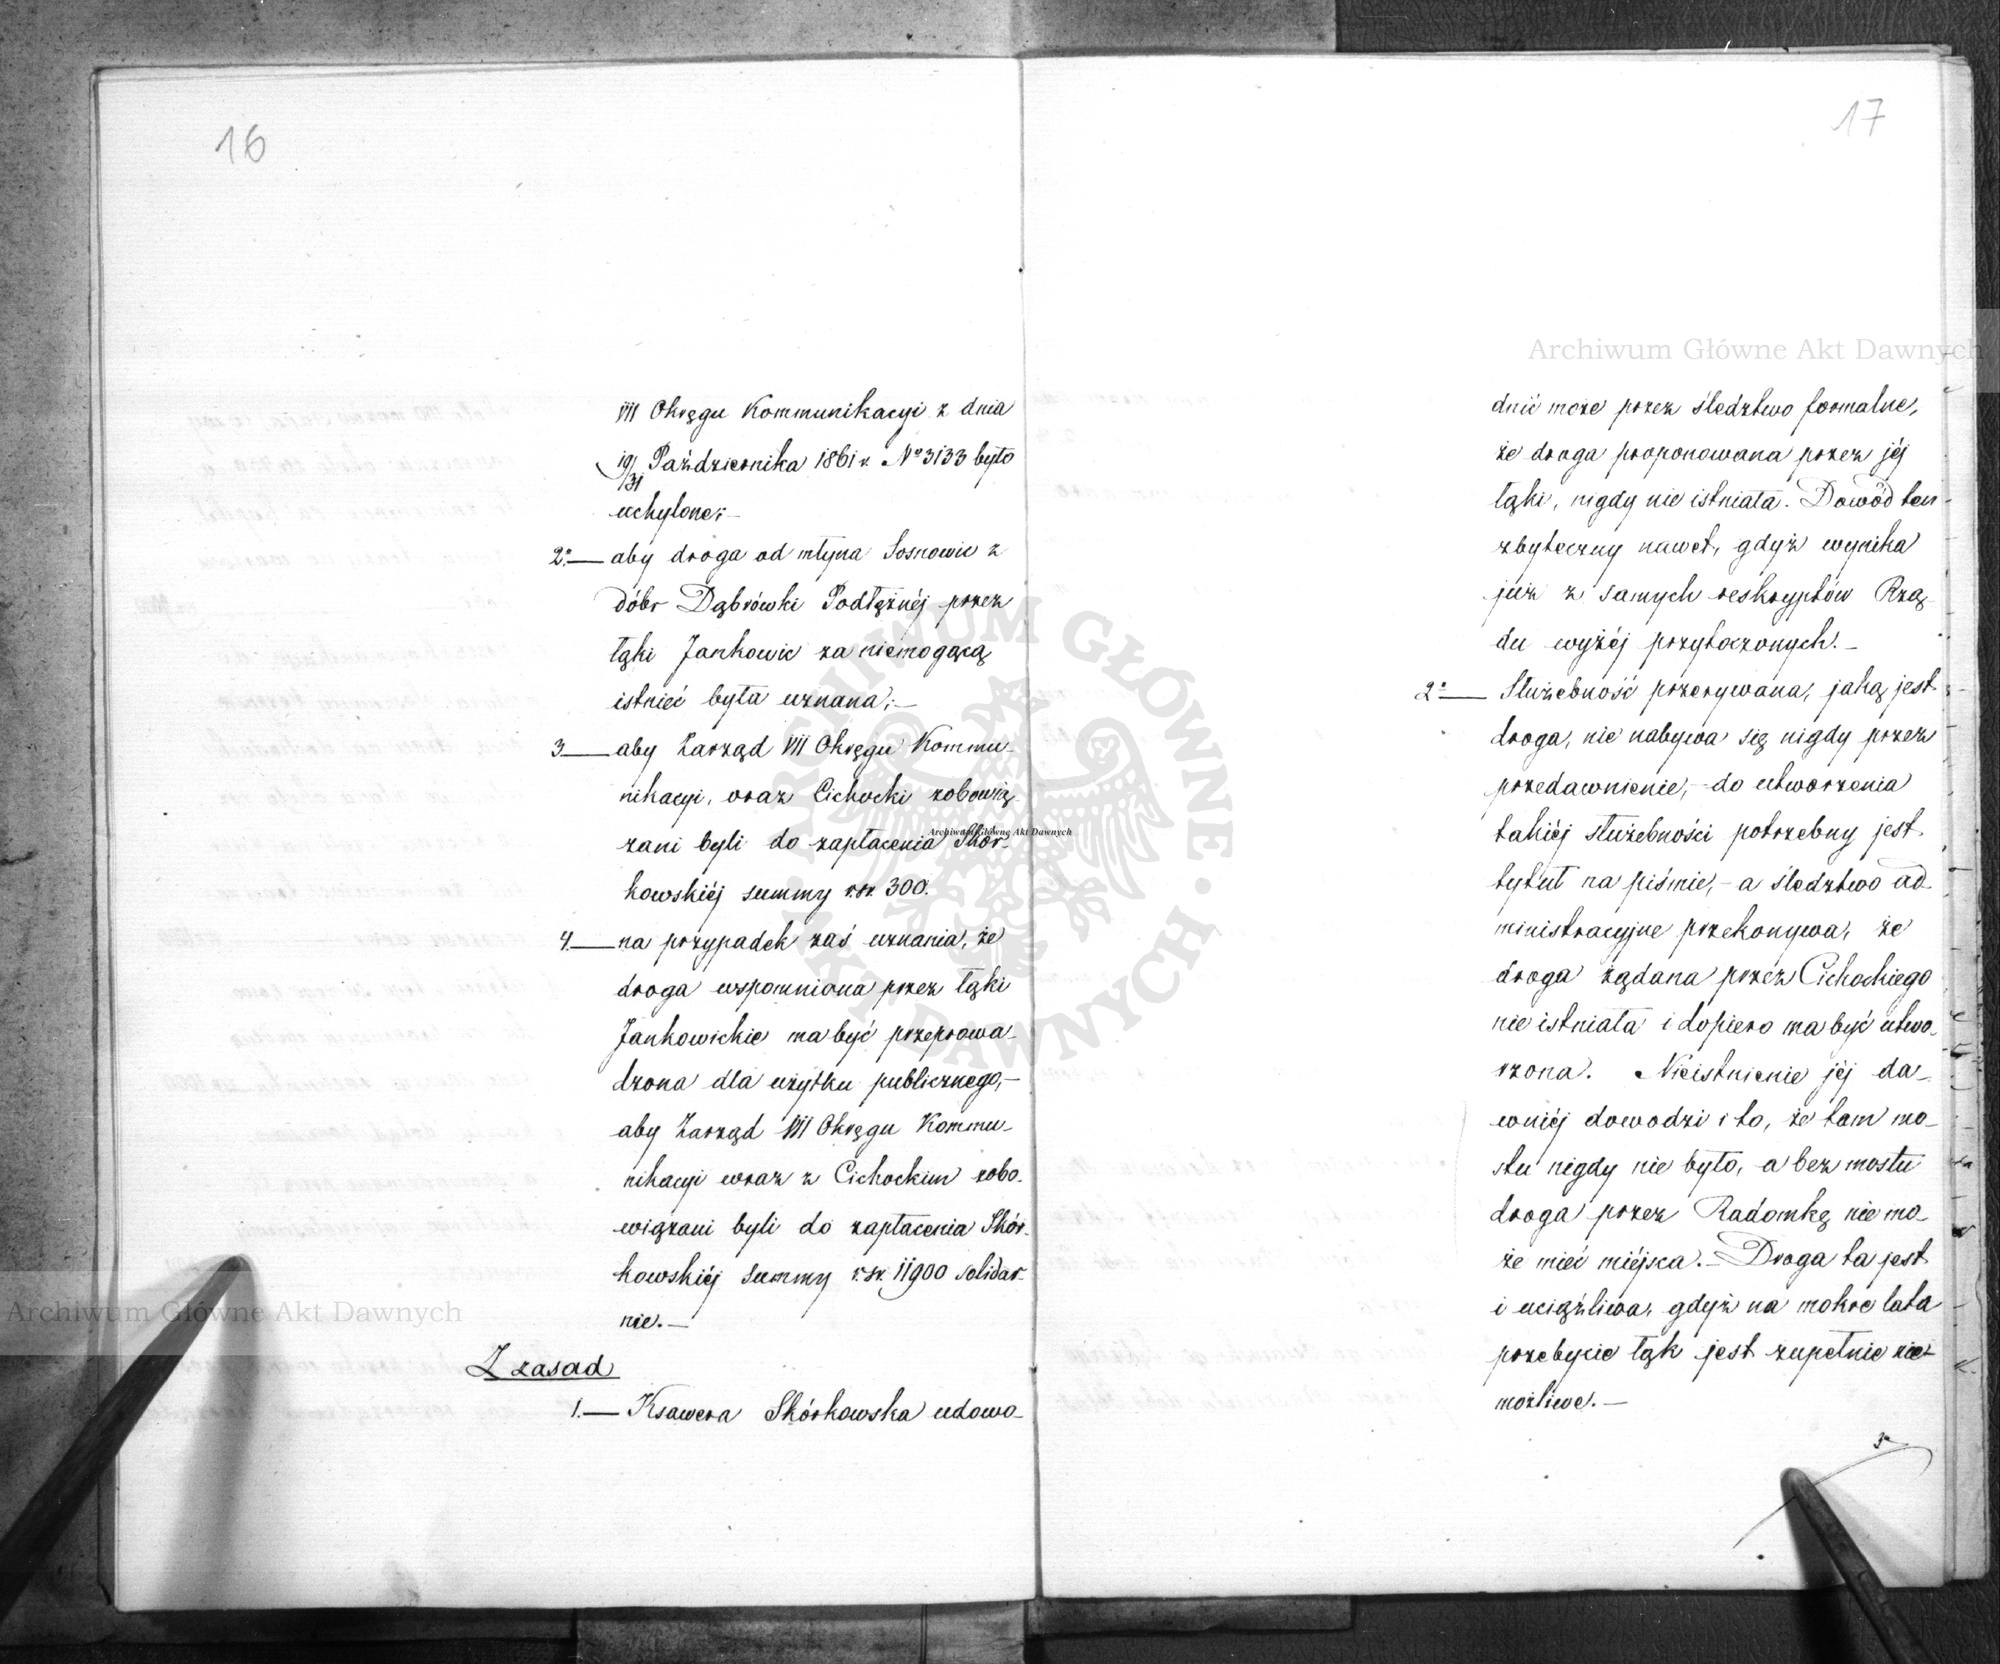 16
VII Okręgu Kommunikacyi z dnia
19/31 Października 1861 r. No 3133 było
uchylone;—
2o.— aby droga od młyna Sosnowic z
dóbr Dąbrówki Podłężnéj przez
łąki Jankowic za niemogącą
istnieć była uznana;—
3— aby Zarząd VII Okręgu Kommu-
nikacyi, oraz Cichocki zobowią-
zani byli do zapłacenia Skór-
kowskiéj summy rsr. 300.
4.— na przypadek zaś uznania, że
droga wspomniona przez łąki
Jankowickie ma być przeprowa-
dzona dla użytku publicznego,—
aby Zarząd VII Okręgu Kommu-
nikacyi wraz z Cichockim zobo-
wiązani byli do zapłacenia Skór-
kowskiéj summy rsr. 11900 solidar-
nie.—
Z zasad
1.— Ksawera Skórkowska udowo-
17
dnić może przez śledztwo formalne,
że droga proponowana przez jéj
łąki, nigdy nie istniała. Dowód ten
zbyteczny nawet, gdyż wynika
już z samych reskryptów Rzą-
du wyżéj przytoczonych.—
2o— Służebność przerywana, jaką jest
droga, nie nabywa się nigdy przez
przedawnienie,— do utworzenia
takiéj służebności potrzebny jest
tytuł na piśmie,— a śledztwo ad-
ministracyjne przekonywa, że
droga żądana przez Cichockiego
nie istniała i dopiero ma być utwo-
rzona. Nieistnienie jéj da-
wniéj dowodzi i to, że tam mo-
stu nigdy nie było, a bez mostu
droga przez Radomkę nie mo-
że mieć miéjsca.— Droga ta jest
i uciążliwa, gdyż na mokre lata
przebycie łąk jest zupełnie nie-
możliwe.—
3o
Archiwum Główne Akt Dawnych
Archiwum Główne Akt Dawnych
Archiwum Główne Akt Dawnych
ARCHIWUM GŁÓWNE
AKT DAWNYCH